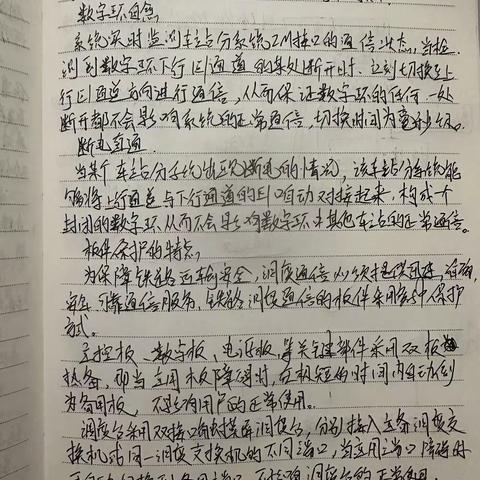 数字环自愈
系统实时监测车站分系统2M接口的通信状态,当检
测到数字环下行E1通道的某处断开时,立刻切换到上
行E1通道方向进行通信,从而保证数字环的任何一处
断开都不会影响系统的正常通信,切换时间为毫秒级。
断电直通
当某个车站分系统出现断电的情况,该车站分系统能
够将上行通道与下行通道的E1自动对接起来,构成一个
封闭的数字环,从而不会影响数字环中其他车站的正常通信。
板件保护的特点,
为保障铁路运输安全,调度通信必须提供迅速、准确、
安全、可靠通信服务,铁路调度通信的板件采用多种保护
方式。
主控板、数字板、电源板,等关键部件采用双板
热备,即当主用板障碍时,在极短的时间内自动倒
为备用板,不影响用户的正常使用。
调度台采用双接口触摸屏调度台,分别接入主备调度交
换机或同一调度交换机的不同端口,当主用端口障碍时